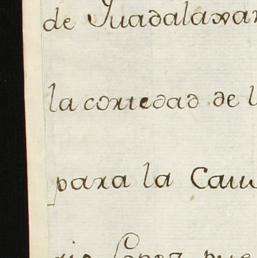 de Guadalaxar
la cortedad de l
para la Cau
rio Lopez que